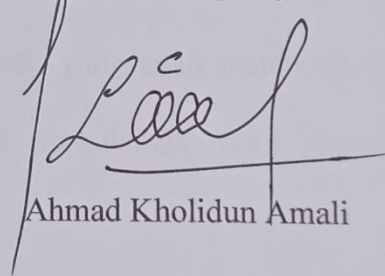 Ahmad Kholidun Amali